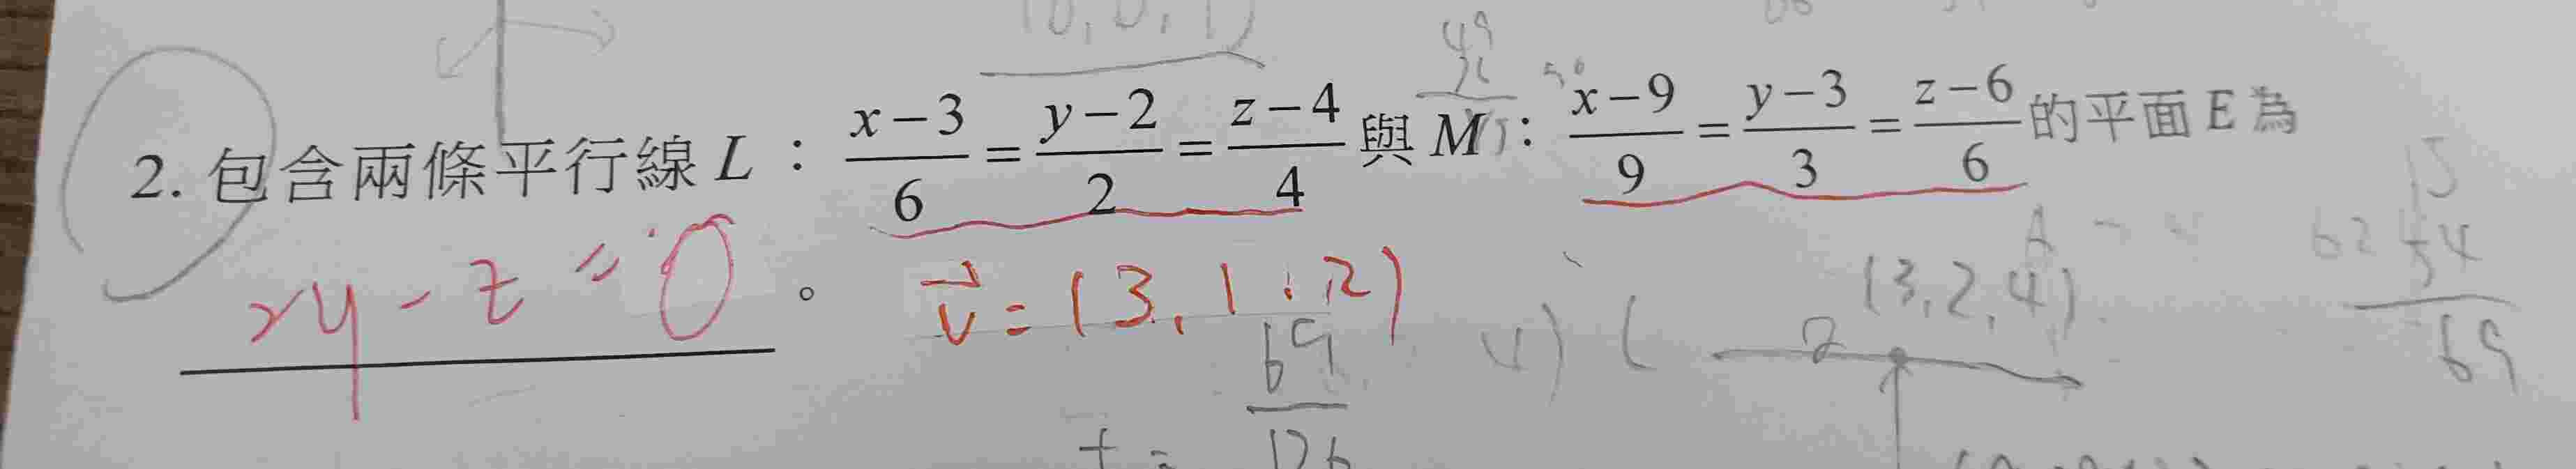 (0, 0, 1)
49
2. 包含兩條平行線 L : \frac{x-3}{6} = \frac{y-2}{2} = \frac{z-4}{4} 與 M : \frac{x-9}{9} = \frac{y-3}{3} = \frac{z-6}{6} 的平面 E 為
2y - z = 0 。 \vec{v} = (3, 1, 2)
(3, 2, 4)
15
54
69
69
126
t =